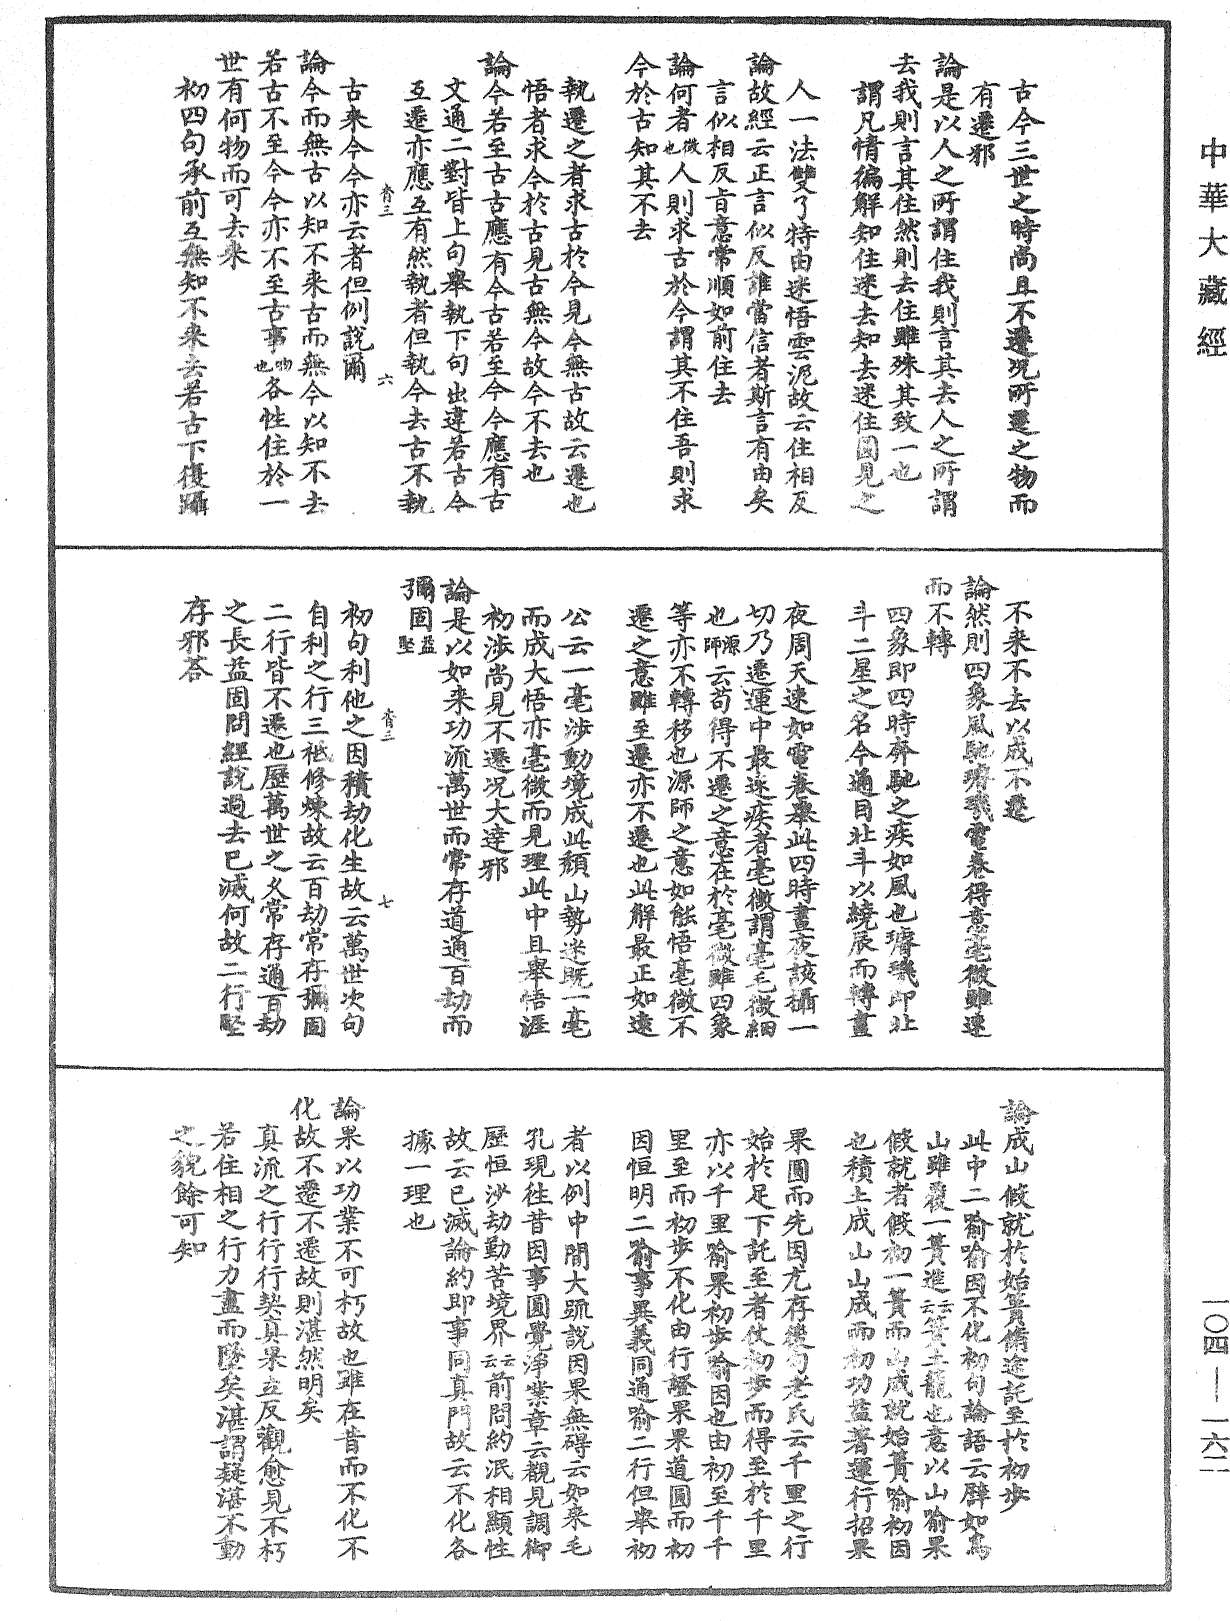 中華大藏經
古今三世之時尚且不遷況所遷之物而
有遷邪
論是以人之所謂住我則言其去人之所謂
去我則言其住然則去住雖殊其致一也
謂凡情徧解知住迷去知去迷住圓見之
人一法雙了特由迷悟雲泥故云住相反
論故經云正言似反誰當信者斯言有由矣
言似相反旨意常順如前住去
論何者徵也人則求古於今謂其不住吾則求
今於古知其不去
執遷之者求古於今見今無古故云遷也
悟者求今於古見古無今故今不去也
論今若至古古應有今古若至今今應有古
文通二對皆上句舉執下句出違若古今
互遷亦應互有然執者但執今去古不執
古來今今亦云者但例說爾
論今而無古以知不來古而無今以知不去
若古不至今今亦不至古事物也各性住於一
世有何物而可去來
初四句承前互無知不來去若古下復躡
不來不去以成不遷
論然則四象風馳璿璣電卷得意毫微雖速
而不轉
四象即四時奔馳之疾如風也璿璣即北
斗二星之名今通目北斗以繞辰而轉晝
夜周天速如電卷舉此四時晝夜該攝一
切乃遷運中最迅疾者毫微謂毫毛微細
也源師云苟得不遷之意在於毫微雖四象
等亦不轉移也源師之意如能悟毫微不
遷之意雖至遷亦不遷也此解最正如遠
公云一毫涉動境成此頹山勢迷既一毫
而成大悟亦毫微而見理此中且舉悟涯
初涉尚見不遷況大達邪
論是以如來功流萬世而常存道通百劫而
彌固益堅
初句利他之因積劫化生故云萬世次句
自利之行三祇修煉故云百劫常存彌固
二行皆不遷也歷萬世之久常存通百劫
之長益固問經說過去已滅何故二行堅
存邪答
論成山假就於始簣脩途託至於初步
此中二喻喻因不化初句論語云譬如為
山雖覆一簣進云云簣土籠也意以山喻果
假就者假初一簣而山成就始簣喻初因
也積土成山山成而初功益著運行招果
果圓而先因尤存後句老氏云千里之行
始於足下託至者仗初步而得至於千里
亦以千里喻果初步喻因也由初至千千
里至而初步不化由行騐果果道圓而初
因恒明二喻事異義同通喻二行但舉初
者以例中間大疏說因果無礙云如來毛
孔現往昔因事圓覺淨業章云觀見調御
歷恒沙劫勤苦境界云云前問約泯相顯性
故云已滅論約即事同真門故云不化各
據一理也
論果以功業不可朽故也雖在昔而不化不
化故不遷不遷故則湛然明矣
真流之行行行契真果立反觀愈見不朽
若住相之行力盡而墜矣湛謂凝湛不動
之貌餘可知
育三
六
育三
七
一〇四—一六二